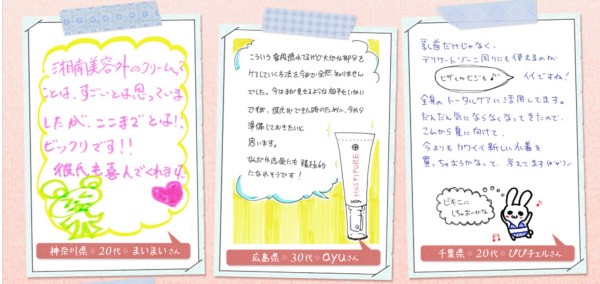 湘南美容外のクリームって
ことは、すごいとは思っていま
したが、ここまでとは!、
ビックリです!!
彼氏も喜んでくれました
神奈川県☆20代☆まいまいさん
こういう普段隠れてるけど大切な部分を
ケアしていく方法を今まで全然知りません
でした。今はまだ見せるような相手もいない
ですが、彼氏ができた時のために、今から
準備しておきたいと
思います。
なんか恋愛にも積極的
になれそうです!
HOSPIPURE
広島県☆30代☆ayuさん
乳首だけじゃなく、
デリケートゾーン周りにも使えるのが
ヒザとかヒジも♪
イイですね!
全身のトータルケアに活用してます。
だんだん気にならなくなってきたので、
これから夏に向けて、
今よりもカワイイ新しい水着を
買っちゃおうかなって、考えてます
ビキニに
しちゃおーかな
千葉県☆20代☆ぴぴチェルさん